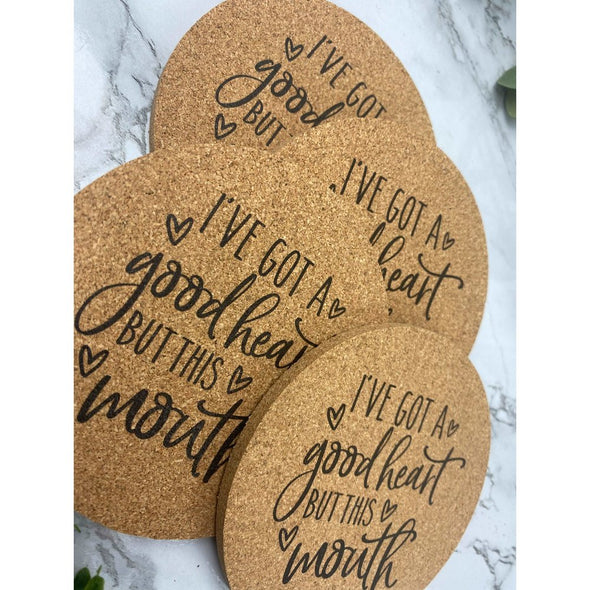 I'VE GOT A
good
BUT
I'VE GOT A
heart
I'VE GOT A
good heart
BUT THIS
mouth
I'VE GOT A
good heart
BUT THIS
mouth